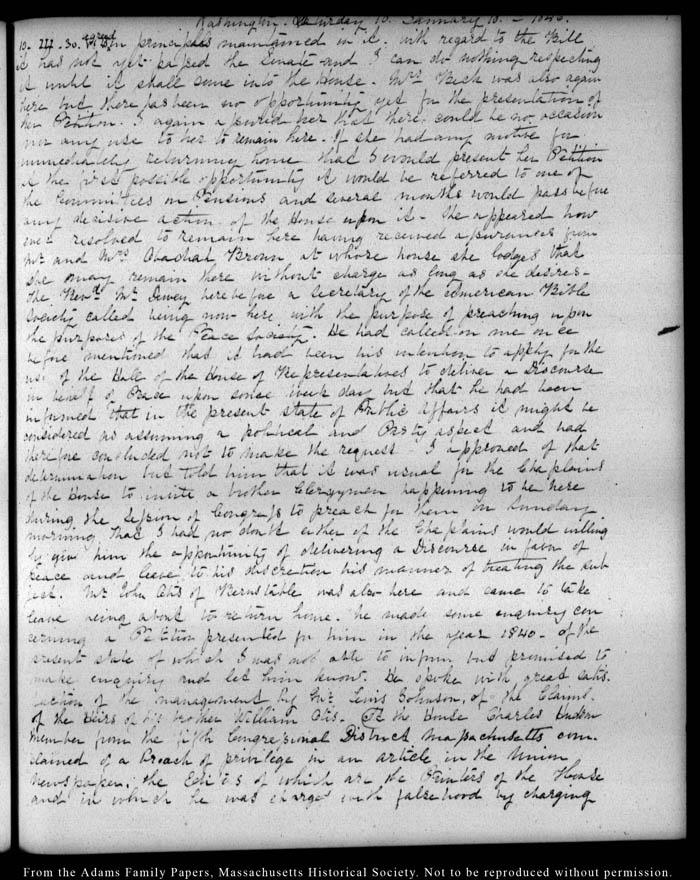 Washington. Saturday 10. January 10. – 1846.
10. III. 30. agreed principals maintained in it. with regard to the Bill
it has not yet passed the Senate and I can do nothing respecting
it until it shall come into the House. Mrs Beck was also again
here but there has been no opportunity yet for the presentation of
her Petition. I again assured her that there could be no occasion
nor any use to her to remain here. If she had any motive for
immediately returning home that I would present her Petition
at the first possible opportunity it would be referred to one of
the Committees on Pensions and several months would pass before
any decisive action of the House upon it – She appeared how
ever resolved to remain here having received assurances from
Mr and Mrs Obadiah Brown at whose house she lodges that
she may remain there without charge as long as she desires –
The Revd. Mr. Dewey heretofore a Secretary of the American Bible
Society called being now here with the purpose of preaching upon
the purposes of the Peace Society. He had called on me once
before mentioned that it had been his intention to apply for the
use of the Hall of the House of Representatives to deliver a Discourse
in behalf of Peace upon some week day but that he had been
informed that in the present state of Public Affairs it might be
considered as assuming a political and Party aspect and had
therefore concluded not to make the request – I approved of that
determination but told him that it was usual for the Chaplains
of the House to invite a brother Clergymen happening to be here
during the Session of Congress to preach for them on Sunday
morning, that I had no doubt either of the Chaplains would willing
ly give him the opportunity of delivering a Discourse in favor of
peace and leave to his discretion his manner of treating the sub
ject. Mr John Otis of Barnstable was also here and came to take
leave being about to return home. he made some enquiry con
cerning a Petition presented for him in the year 1840 – of the
present state of which I was not able to inform, but promised to
make enquiry and let him know. He spoke with great satis
faction of the management by Mr. Lewis Johnson, of the Claims
of the Heirs of his brother William Otis. At the House Charles Hudson
member from the fifth Congressional District Massachusetts com
plained of a Breach of privilege in an article in the Union
Newspaper, the Editors of which are the Printers of the House
and in which he was charged with falsehood by charging
From the Adams Family Papers, Massachusetts Historical Society. Not to be reproduced without permission.